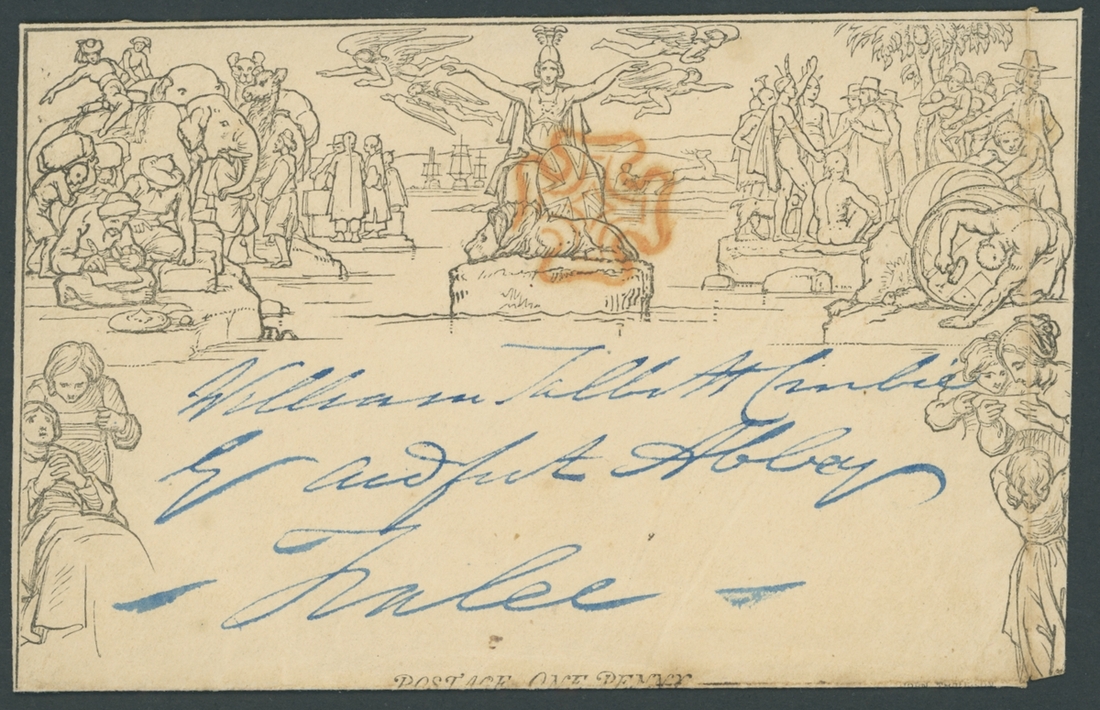 William Talbott Crosbie
Esq Ardfert Abbey
- Tralee -
POSTAGE ONE PENNY